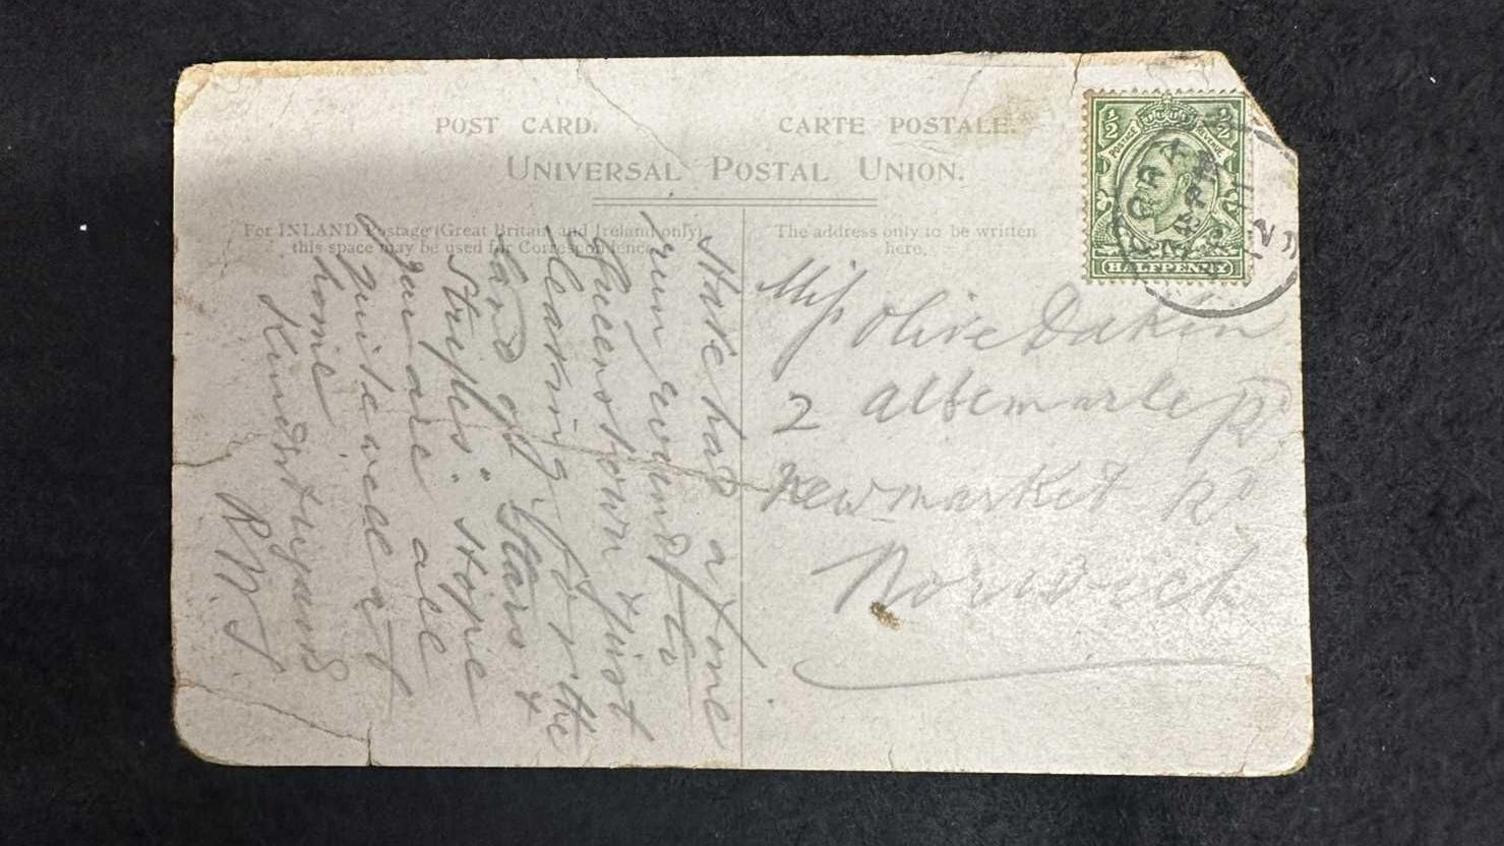 POST CARD. CARTE POSTALE.
UNIVERSAL POSTAL UNION.
For INLAND Postage (Great Britain and Ireland only)
this space may be used for Correspondence.
The address only to be written
here.
½ ½
POSTAGE REVENUE
HALFPENNY
CORK
AP
12
Miss Olive Dakin
2 Albemarle
Newmarket Rd
Norwich
Have had a fine
run round to
Queenstown & just
leaving for the
land of "Stars &
Stripes". Hope
you are all
quite well at
home
Kindest regards
R.M.J